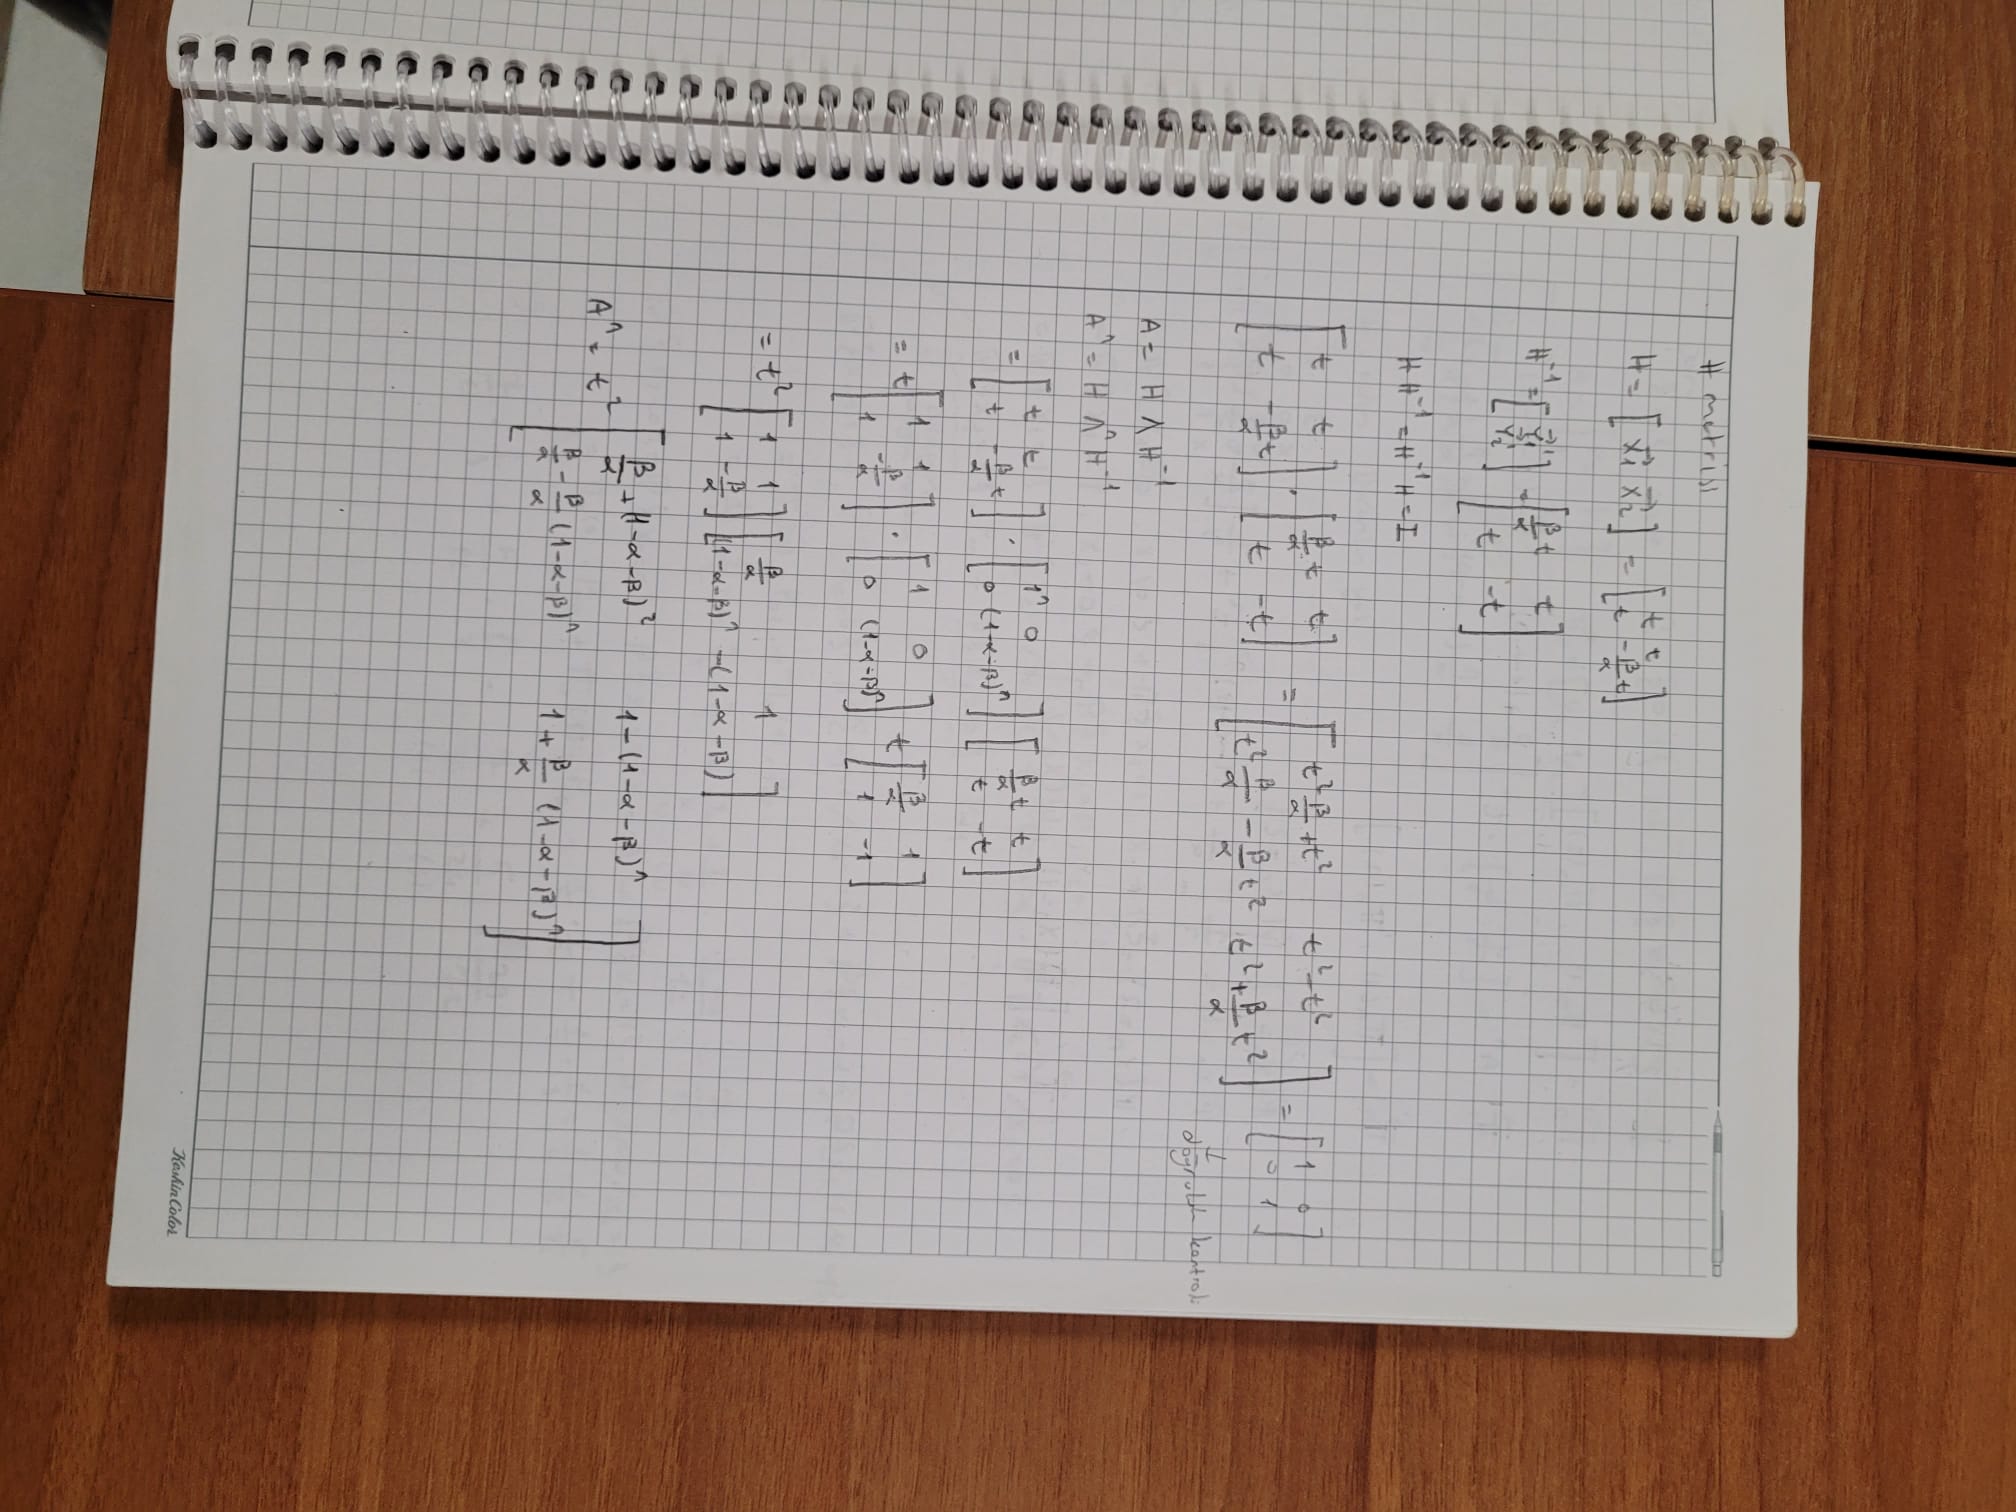 # matrisi
H = [ X⃗₁ X⃗₂ ] = [ t t ; t -β/α t ]
H⁻¹ = [ Y⃗₁' ; Y⃗₂' ] = [ β/α t t ; t -t ]
H H⁻¹ = H⁻¹ H = I
[ t t ; t -β/α t ] . [ β/α t t ; t -t ] = [ t² β/α + t² t² - t² ; t² β/α - β/α t² t² + β/α t² ] = [ 1 0 ; 0 1 ]
↓
doğruluk kontrolü
A = H Λ H⁻¹
Aⁿ = H Λⁿ H⁻¹
= [ t t ; t -β/α t ] . [ 1ⁿ 0 ; 0 (1-α-β)ⁿ ] [ β/α t t ; t -t ]
= t [ 1 1 ; 1 -β/α ] . [ 1 0 ; 0 (1-α-β)ⁿ ] t [ β/α 1 ; 1 -1 ]
= t² [ 1 1 ; 1 -β/α ] [ β/α 1 ; (1-α-β)ⁿ -(1-α-β) ]
Aⁿ = t² [ β/α + (1-α-β)² 1 - (1-α-β)ⁿ ; β/α - β/α (1-α-β)ⁿ 1 + β/α (1-α-β)ⁿ ]
KeskinColor